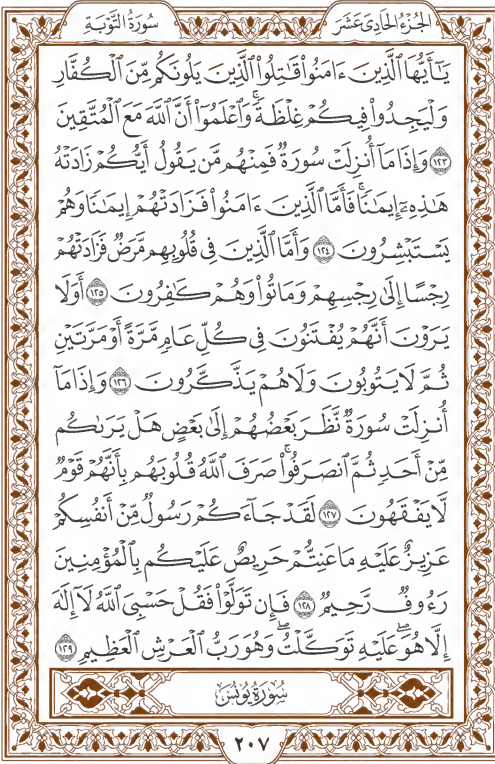 الجُزْءُ الحَادِي عَشَر
سُورَةُ التَّوْبَةِ
يَـٰٓأَيُّهَا ٱلَّذِينَ ءَامَنُوا۟ قَـٰتِلُوا۟ ٱلَّذِينَ يَلُونَكُم مِّنَ ٱلْكُفَّارِ
وَلْيَجِدُوا۟ فِيكُمْ غِلْظَةً ۚ وَٱعْلَمُوٓا۟ أَنَّ ٱللَّهَ مَعَ ٱلْمُتَّقِينَ
١٢٣ وَإِذَا مَآ أُنزِلَتْ سُورَةٌ فَمِنْهُم مَّن يَقُولُ أَيُّكُمْ زَادَتْهُ
هَـٰذِهِۦٓ إِيمَـٰنًا ۚ فَأَمَّا ٱلَّذِينَ ءَامَنُوا۟ فَزَادَتْهُمْ إِيمَـٰنًا وَهُمْ
يَسْتَبْشِرُونَ ١٢٤ وَأَمَّا ٱلَّذِينَ فِى قُلُوبِهِم مَّرَضٌ فَزَادَتْهُمْ
رِجْسًا إِلَىٰ رِجْسِهِمْ وَمَاتُوا۟ وَهُمْ كَـٰفِرُونَ ١٢٥ أَوَلَا
يَرَوْنَ أَنَّهُمْ يُفْتَنُونَ فِى كُلِّ عَامٍ مَّرَّةً أَوْ مَرَّتَيْنِ
ثُمَّ لَا يَتُوبُونَ وَلَا هُمْ يَذَّكَّرُونَ ١٢٦ وَإِذَا مَآ
أُنزِلَتْ سُورَةٌ نَّظَرَ بَعْضُهُمْ إِلَىٰ بَعْضٍ هَلْ يَرَىٰكُم
مِّنْ أَحَدٍ ثُمَّ ٱنصَرَفُوا۟ ۚ صَرَفَ ٱللَّهُ قُلُوبَهُم بِأَنَّهُمْ قَوْمٌ
لَّا يَفْقَهُونَ ١٢٧ لَقَدْ جَآءَكُمْ رَسُولٌ مِّنْ أَنفُسِكُمْ
عَزِيزٌ عَلَيْهِ مَا عَنِتُّمْ حَرِيصٌ عَلَيْكُم بِٱلْمُؤْمِنِينَ
رَءُوفٌ رَّحِيمٌ ١٢٨ فَإِن تَوَلَّوْا۟ فَقُلْ حَسْبِىَ ٱللَّهُ لَآ إِلَـٰهَ
إِلَّا هُوَ ۖ عَلَيْهِ تَوَكَّلْتُ ۖ وَهُوَ رَبُّ ٱلْعَرْشِ ٱلْعَظِيمِ ١٢٩
سُورَةُ يُونُسَ
٢٠٧